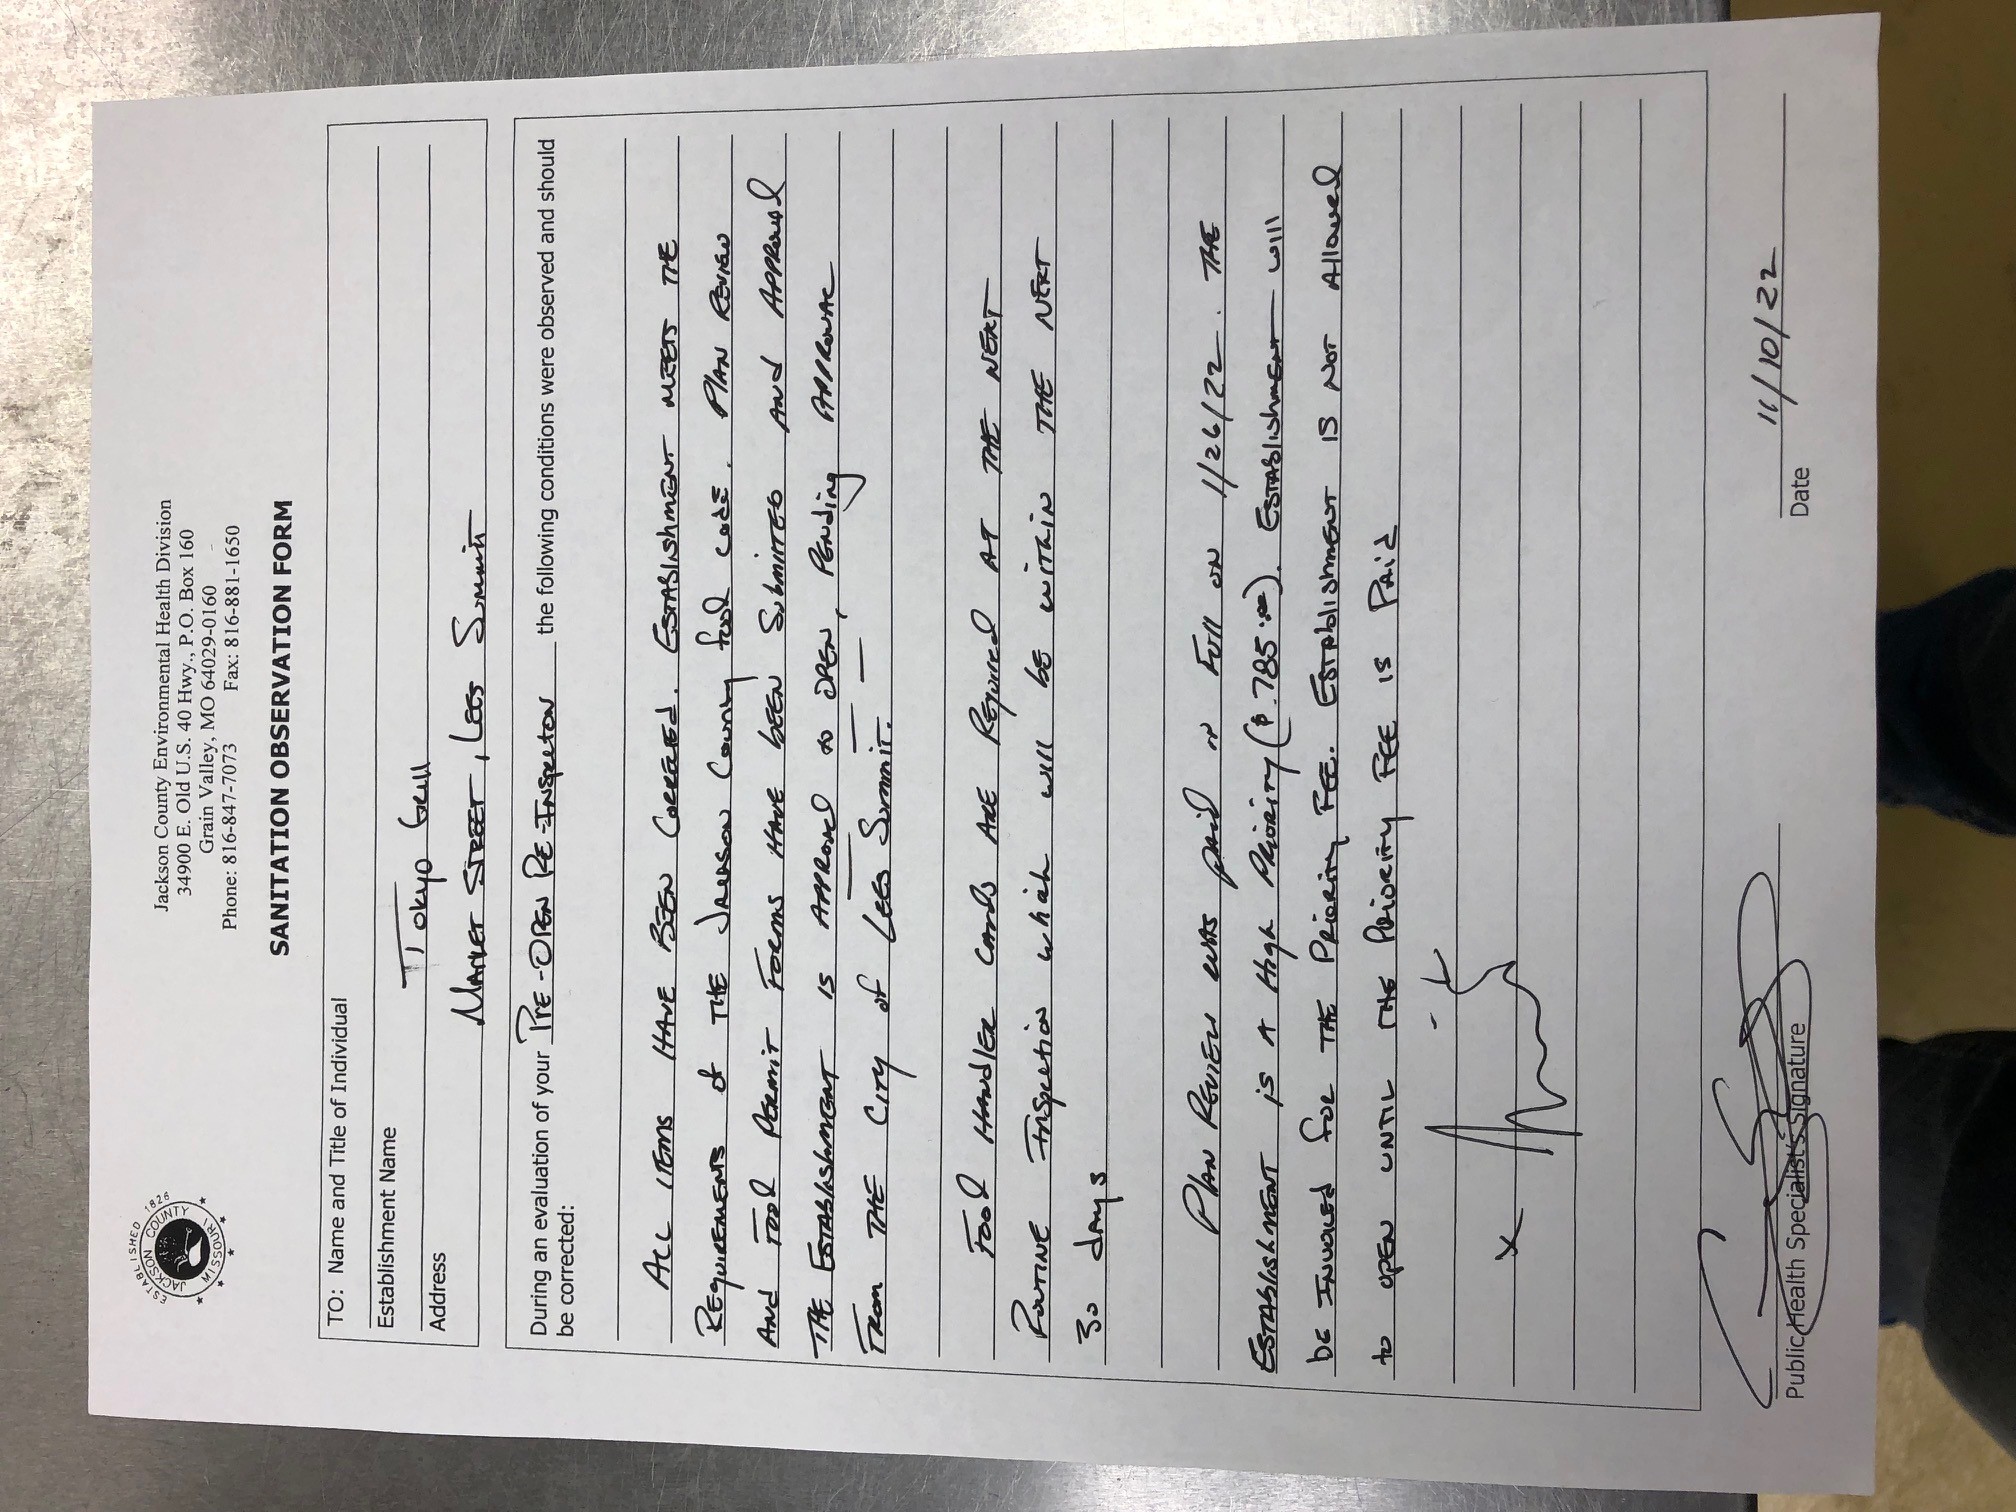 ESTABLISHED 1826
JACKSON COUNTY
MISSOURI
Jackson County Environmental Health Division
34900 E. Old U.S. 40 Hwy., P.O. Box 160
Grain Valley, MO 64029-0160
Phone: 816-847-7073 Fax: 816-881-1650
SANITATION OBSERVATION FORM
TO: Name and Title of Individual
Establishment Name Tokyo Grill
Address Market Street, Lees Summit
During an evaluation of your Pre-Open Re-Inspection the following conditions were observed and should
be corrected:
All items have been corrected. Establishment meets the
Requirements of the Jackson County food code. Plan Review
And Food Permit Forms have been submitted and approved
The Establishment is approved to open, pending approval
From the City of Lees Summit.
Food Handler Cards are required at the next
Routine Inspection which will be within the next
30 days
Plan Review was paid in full on 1/26/22. The
Establishment is a High Priority ($785.00). Establishment will
be invoiced for the Priority Fee. Establishment is not allowed
to open until the Priority Fee is paid
x
Public Health Specialist's Signature
Date 11/10/22